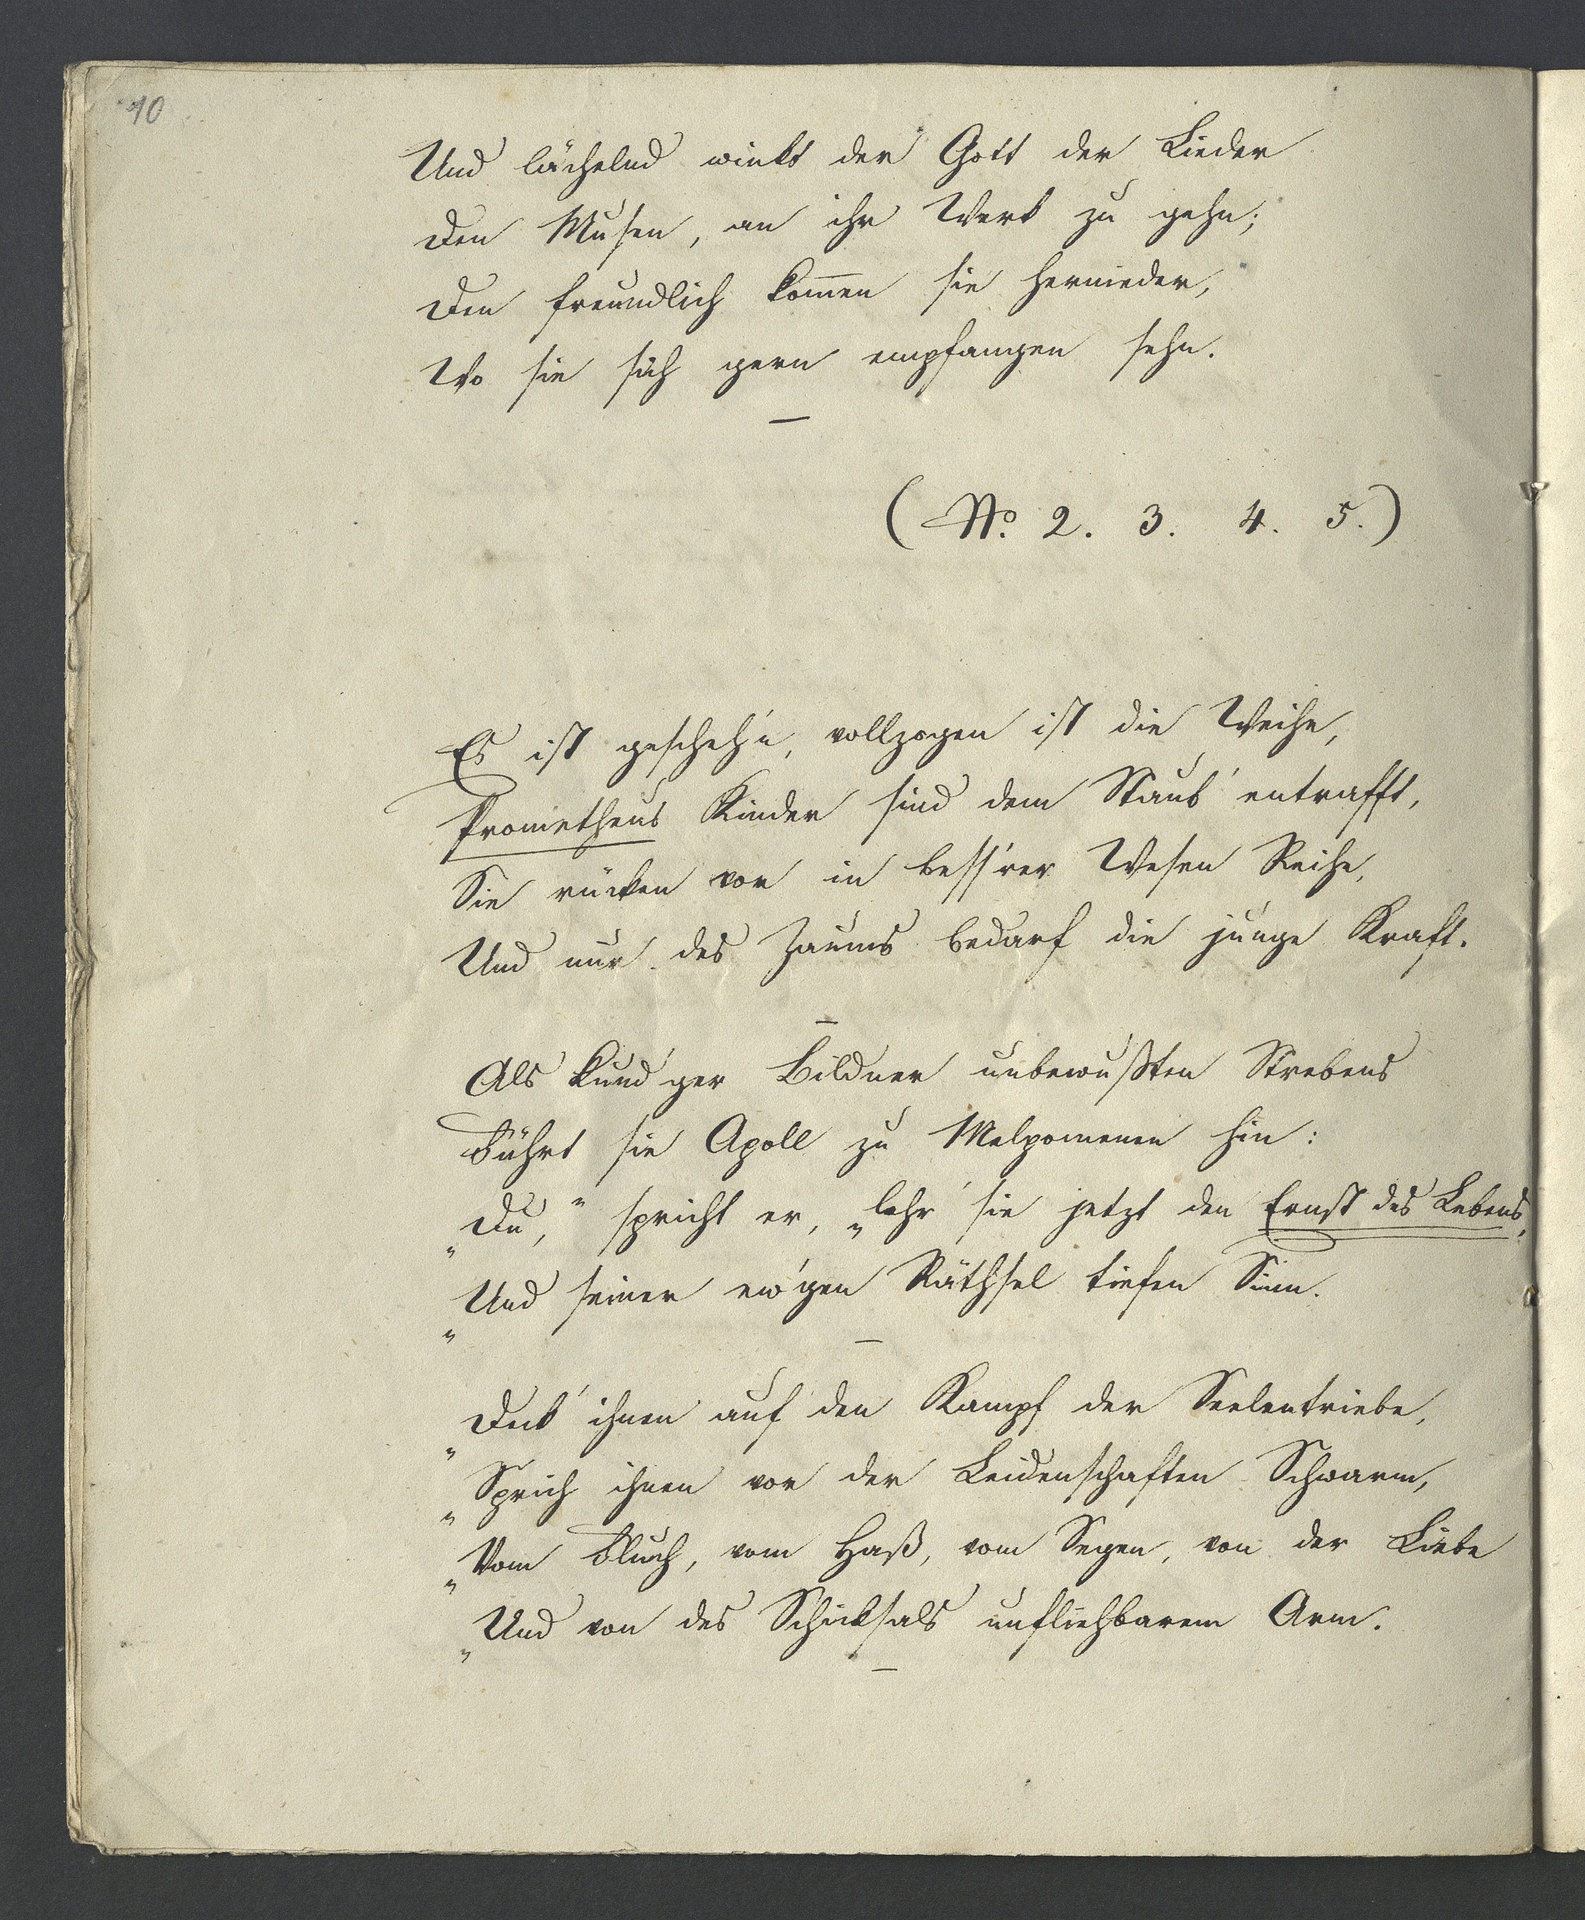 10
Und lächelnd winkt der Gott der Lieder
Den Musen, an ihr Werk zu gehn;
Den freundlich kom̅en sie hernieder,
Wo sie sich gern empfangen sehn.
—
(No. 2. 3. 4. 5.)
Es ist gescheh'n, vollzogen ist die Weihe,
Prometheus Kinder sind dem Staub' entrafft,
Sie rücken vor in bess'rer Wesen Reihe,
Und nur des Zaums bedarf die junge Kraft.
—
Als kund'ger Bildner unbewußten Strebens
Führt sie Apoll zu Melpomenen hin:
„Du," spricht er, „lehr' sie jetzt den Ernst des Lebens,
„Und seiner ew'gen Räthsel tiefen Sinn.
—
„Deck' ihnen auf den Kampf der Seelentriebe,
„Sprich ihnen vor der Leidenschaften Schwarm,
„Vom Fluch, vom Haß, vom Segen, von der Liebe
„Und von des Schicksals unfliehbarem Arm.
—